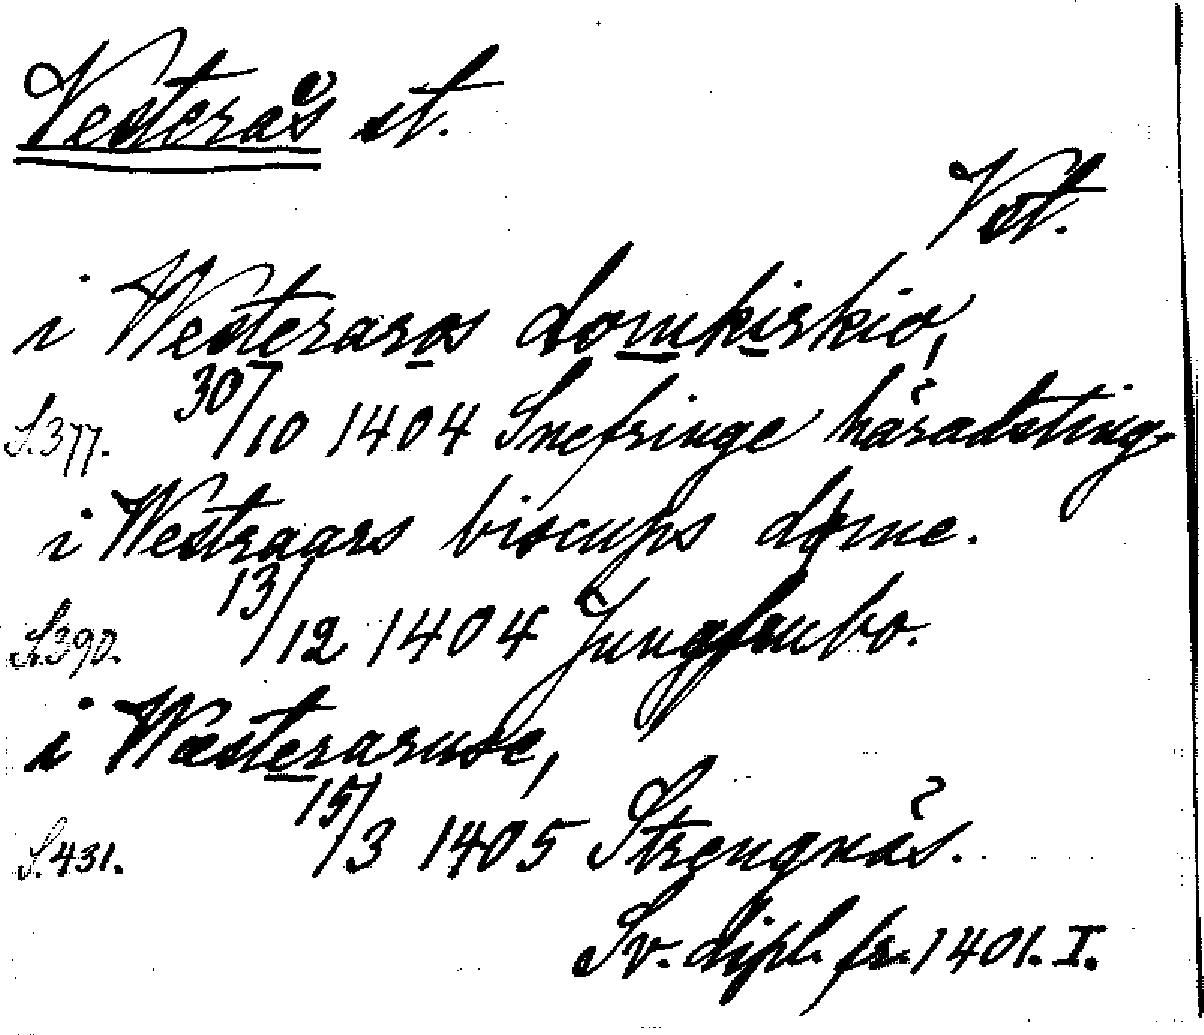 Vesterås st.
Vst.
i Westeraros domkirkio,
S. 377. 30/10 1404 Snefringe häradsting.
i Westraars biscups döme.
S. 390. 13/12 1404 Jungfrubo.
i Wæsteraruse,
S. 431. 15/3 1405 Strengnäs.
Sv. dipl. fr. 1401. I.